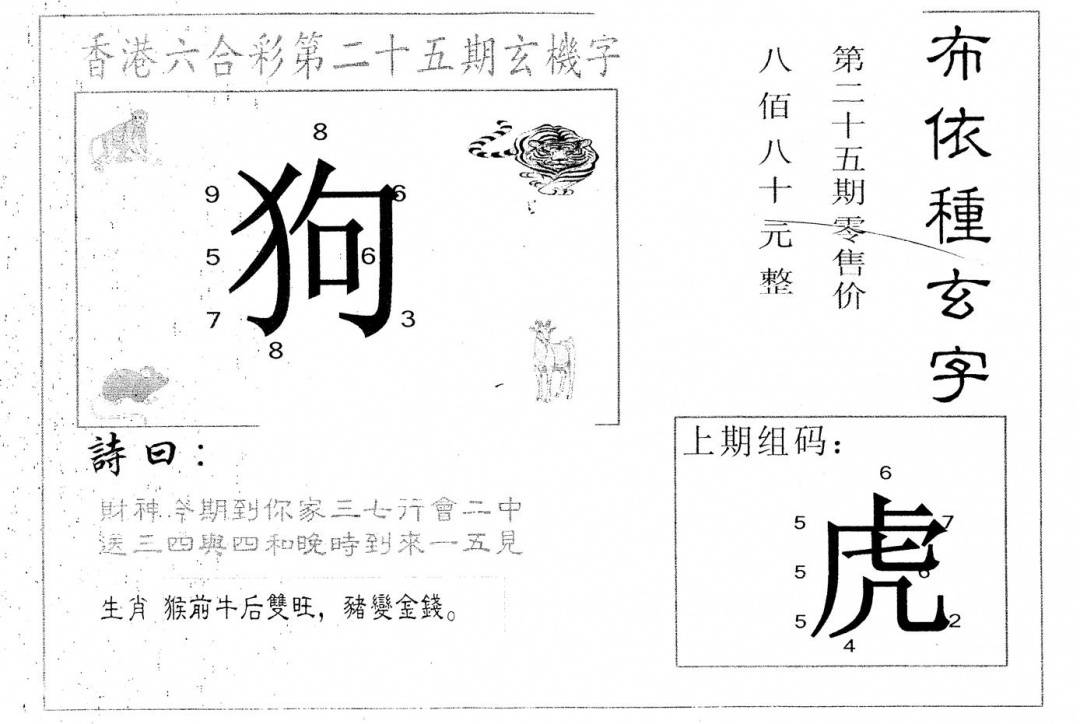 香港六合彩第二十五期玄機字
8
9
6
狗
5
6
7
3
8
詩曰：
財神今期到你家三七行會二中
送三四與四和晚時到來一五見
生肖 猴前牛后雙旺，豬變金錢。
布依種玄字
第二十五期零售价
八佰八十元整
上期组码：
6
5
7
虎
5
6
5
2
4